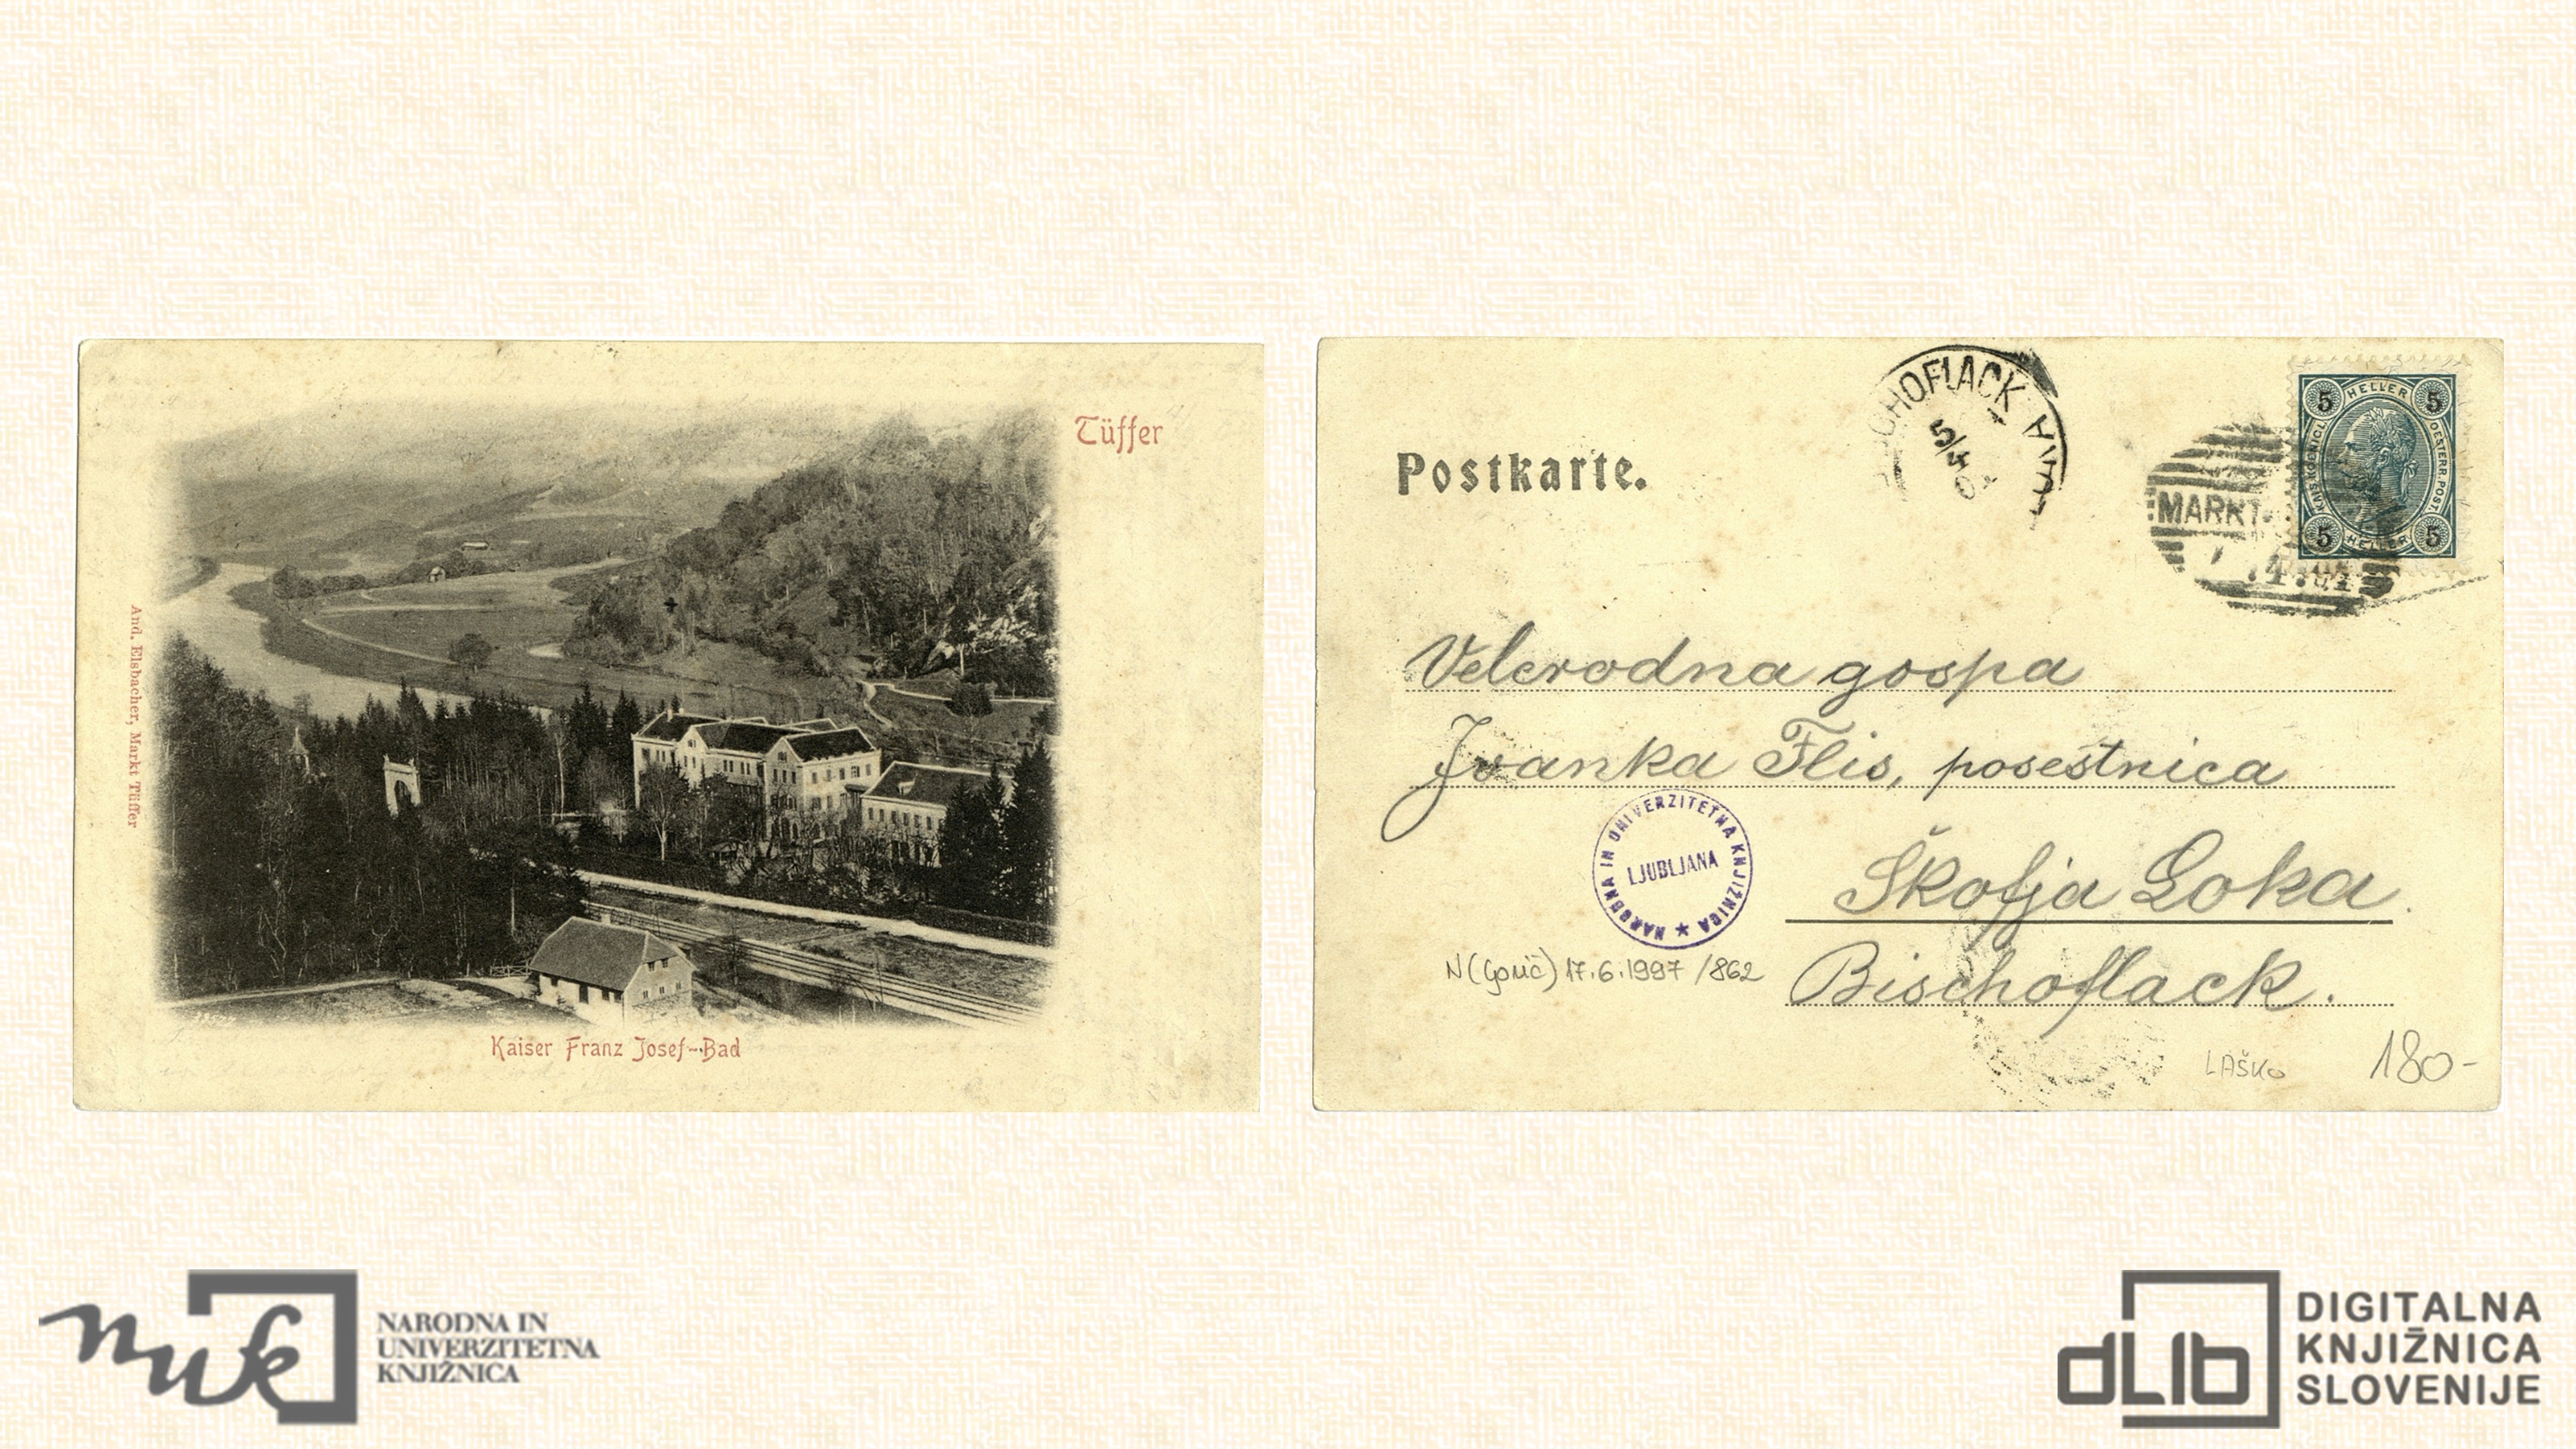 Tüffer
And. Elsbacher, Markt Tüffer
Kaiser Franz Josef-Bad
Postkarte.
CHOFLACK
5/4
MARKT
4.04
5 HELLER 5
OESTERR. POST.
5 HELLER 5
Velerodna gospa
Ivanka Flis, posestnica
Škofja Loka.
Bischoflack.
NARODNA IN UNIVERZITETNA KNJIŽNICA ★
LJUBLJANA
17.6.1997 /862
LAŠKO
180-
nuk
NARODNA IN
UNIVERZITETNA
KNJIŽNICA
dLib
DIGITALNA
KNJIŽNICA
SLOVENIJE